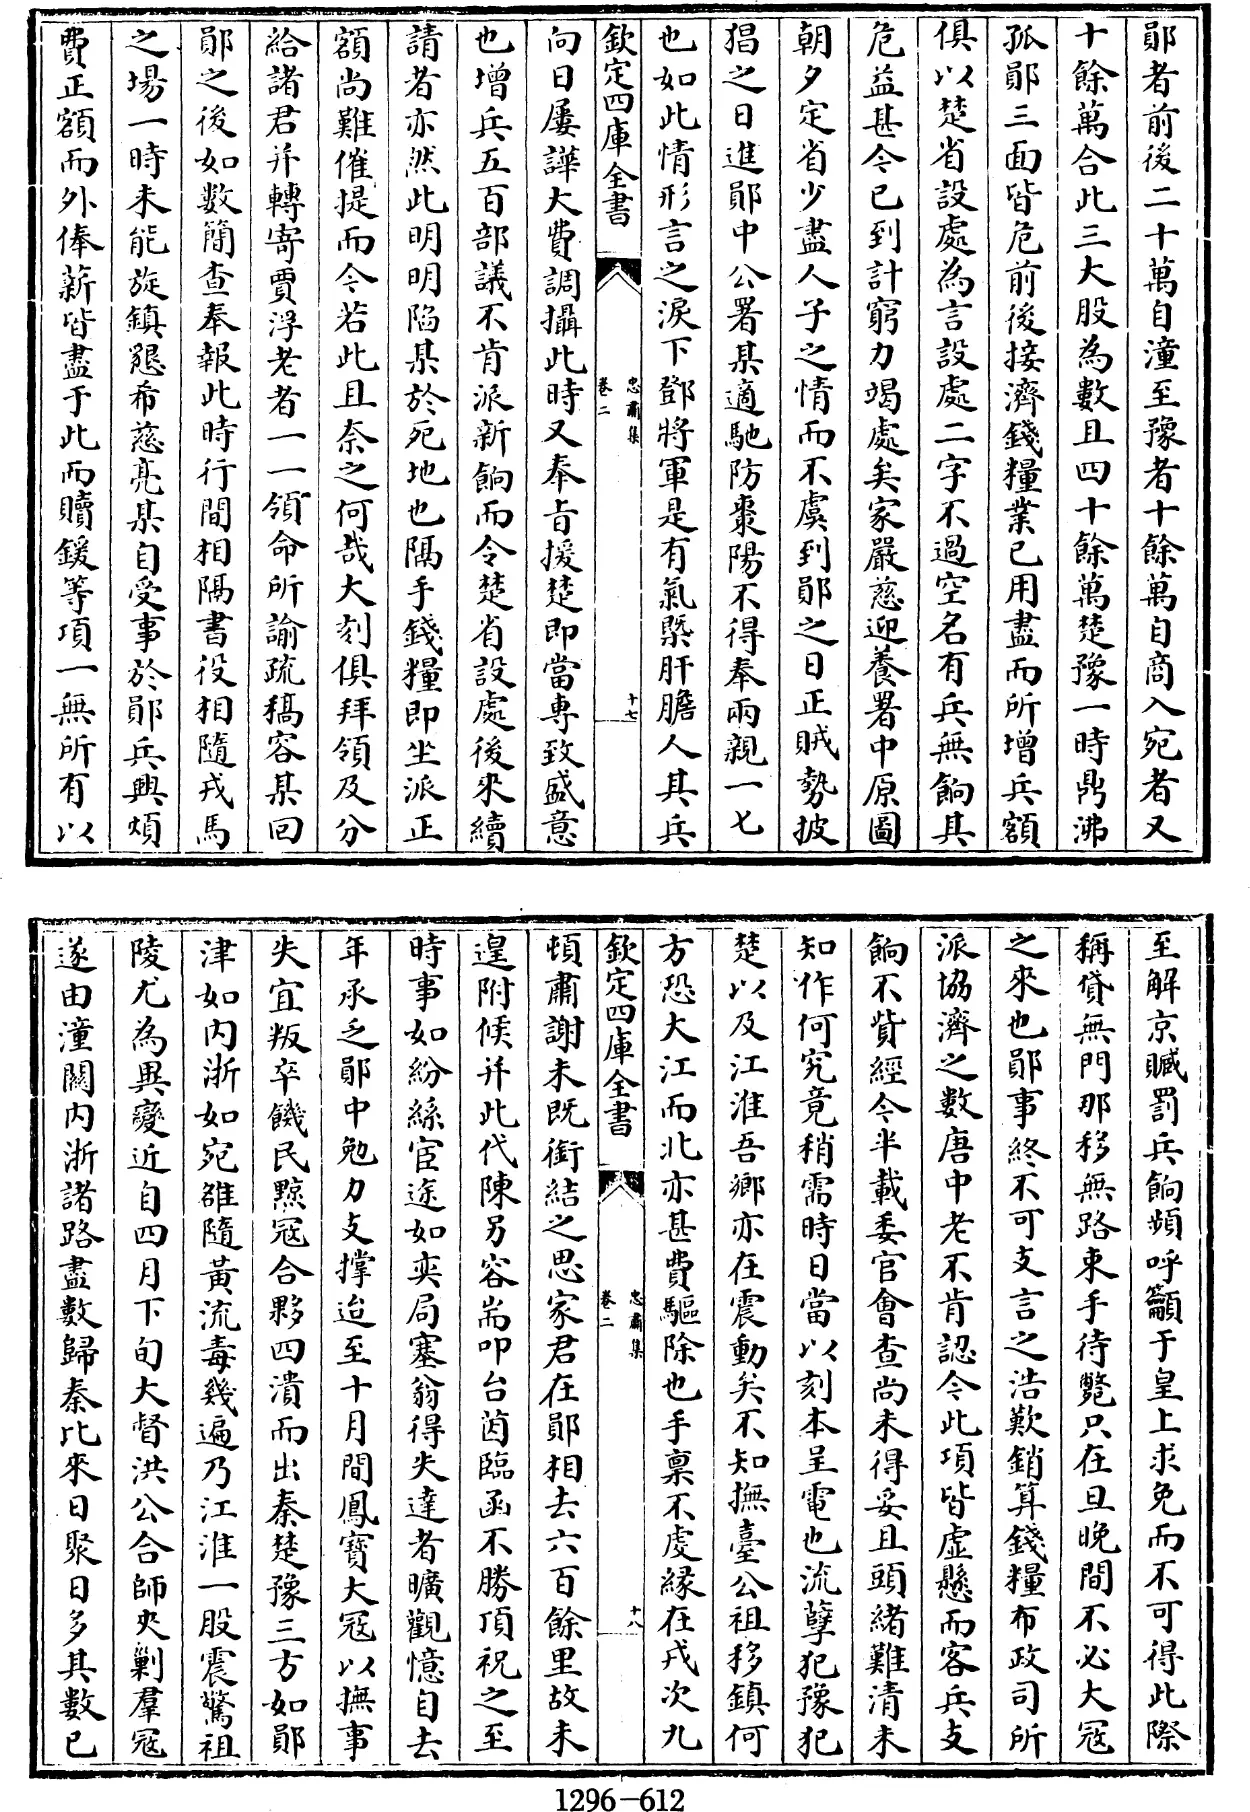 鄖者前後二十萬自潼至豫者十餘萬自商入宛者又
十餘萬合此三大股為數且四十餘萬楚豫一時鼎沸
孤鄖三面皆危前後接濟錢糧業已用盡而所增兵額
俱以楚省設處為言設處二字不過空名有兵無餉其
危益甚今已到計窮力竭處矣家嚴慈迎養署中原圖
朝夕定省少盡人子之情而不虞到鄖之日正賊勢披
猖之日進鄖中公署某適馳防棗陽不得奉兩親一七
也如此情形言之淚下鄧將軍是有氣槩肝膽人其兵
欽定四庫全書
忠肅集
卷二
十七
向日屢譁大費調攝此時又奉㫖援楚即當專致盛意
也增兵五百部議不肯派新餉而令楚省設處後來續
請者亦然此明明陷某於死地也隔手錢糧即坐派正
額尚難催提而今若此且奈之何哉大刻俱拜領及分
給諸君并轉寄賈浮老者一一領命所諭疏稿容某回
鄖之後如數簡查奉報此時行間相隔書役相隨戎馬
之場一時未能旋鎮懇希慈亮某自受事於鄖兵興煩
費正額而外俸薪皆盡于此而贖鍰等項一無所有以
至解京贓罰兵餉頻呼籲于皇上求免而不可得此際
稱貸無門那移無路束手待斃只在旦晚間不必大寇
之來也鄖事終不可支言之浩歎銷算錢糧布政司所
派協濟之數唐中老不肯認今此項皆虛懸而客兵支
餉不貲經今半載委官會查尚未得妥且頭緒難清未
知作何究竟稍需時日當以刻本呈電也流孽犯豫犯
楚以及江淮吾鄉亦在震動矣不知撫臺公祖移鎮何
方恐大江而北亦甚費驅除也手稟不虔緣在戎次九
欽定四庫全書
忠肅集
卷二
十八
頓肅謝未既銜結之思家君在鄖相去六百餘里故未
遑附候并此代陳另容耑叩台茵臨函不勝頂祝之至
時事如紛絲宦途如奕局塞翁得失達者曠觀憶自去
年承乏鄖中勉力支撐迨至十月間鳳寶大寇以撫事
失宜叛卒饑民黠寇合夥四潰而出秦楚豫三方如鄖
津如内浙如宛雒隨黃流毒幾遍乃江淮一股震驚祖
陵尤為異變近自四月下旬大督洪公合師夾剿羣寇
遂由潼關内浙諸路盡數歸秦比來日聚日多其數已
1296-612